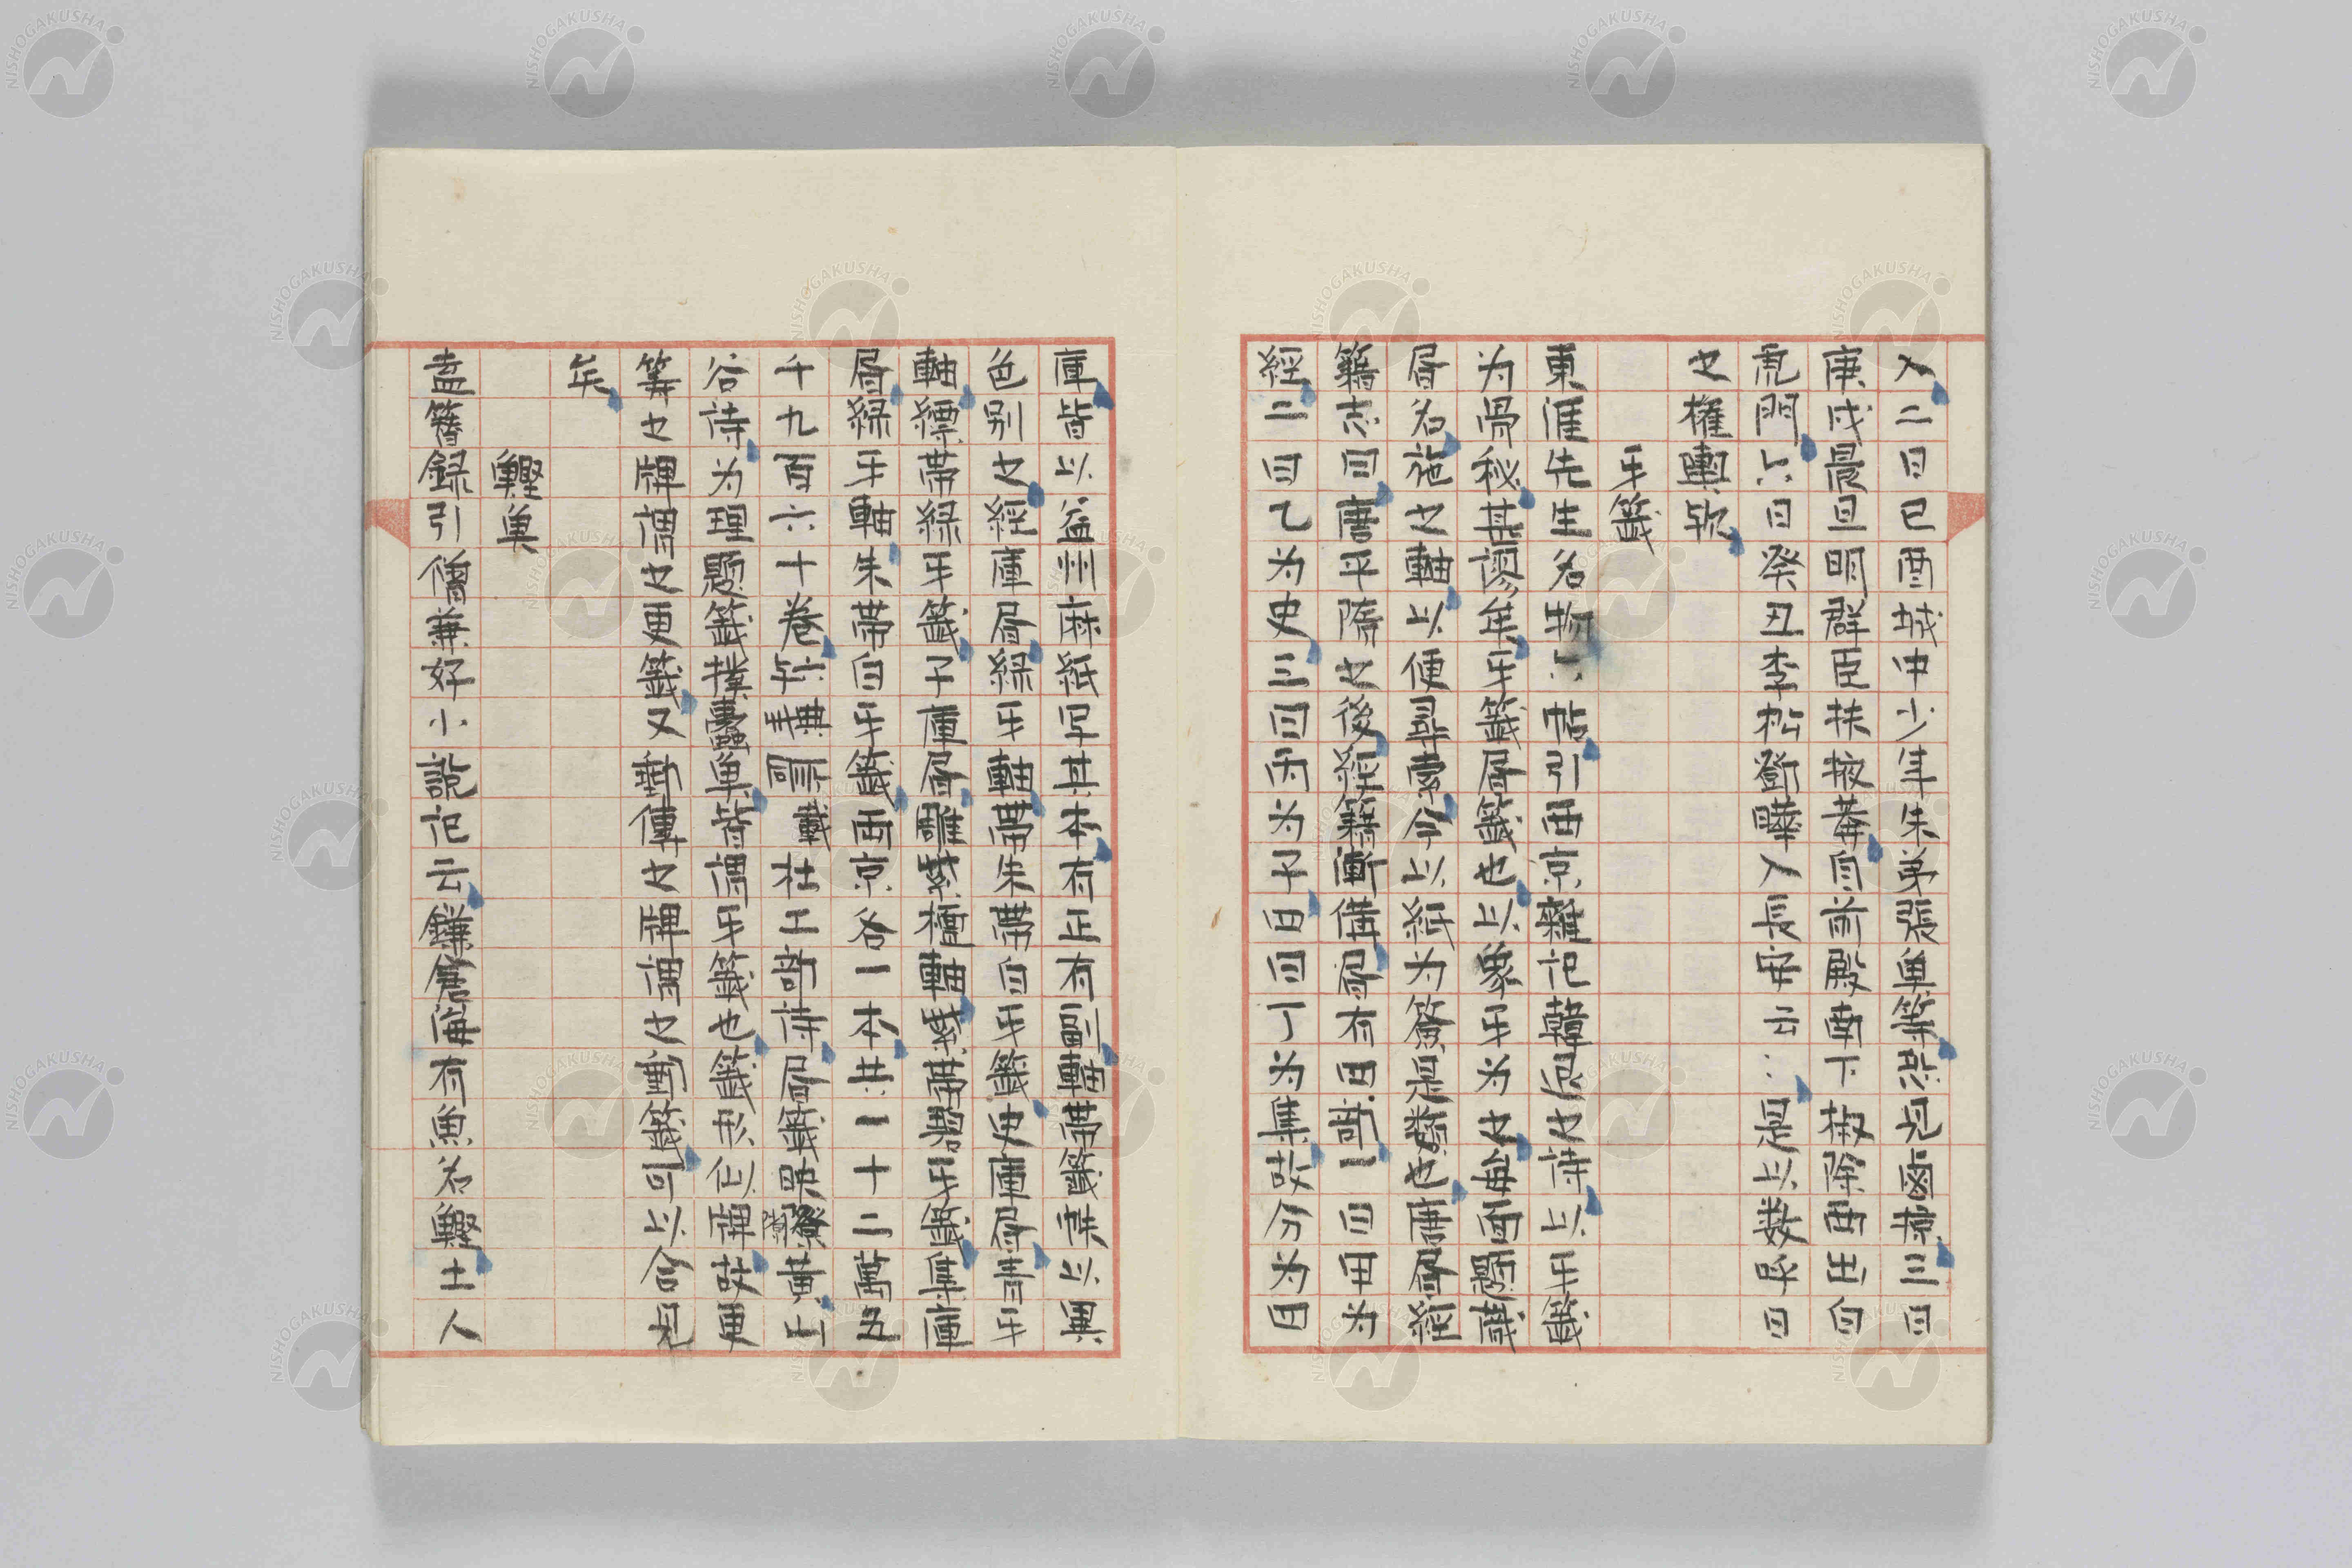 入二日己酉城中少年朱弟張魚等恐見鹵掠三日
庚戌晨旦明群臣扶掖莽自前殿南下椒除西出白
虎門六日癸丑李松鄧曄入長安云々是以数紀日
之權輿歟
牙籤
東涯先生名物六帖引西京雜記韓退之詩以牙籤
为骨秘其謬年牙籤書籤也以象牙为之毎面題識
書名施之軸以便尋索今以紙为簽非其類也唐書經
籍志曰唐平隋之後經籍漸備書有四部一曰甲为
經二曰乙为史三曰丙为子四曰丁为集故分为四
庫皆以益州麻紙写其本有正有副軸帶籤帙以異
色别之經庫書緑牙軸帶朱帶白牙籤史庫書青牙
軸縹帶緑牙籤子庫書雕紫檀軸紫帶碧牙籤集庫
書緑牙軸朱帶白牙籤両京各一本共一十二萬五
千九百六十卷 杜工部詩書籤 黄山
谷詩为理題籤撲蠹魚皆謂牙籤也籤形似牌故更
籌之牌謂之更籤又 傳之牌謂之 籤可以合見
矣
鰹魚
盍簪録引僧兼好小説記云鎌倉海有魚名鰹土人